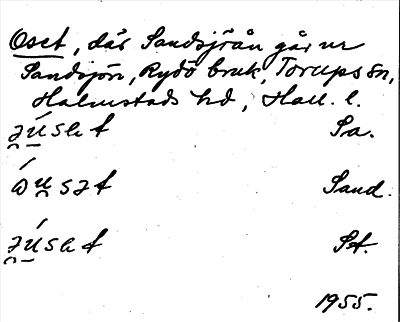 Oset, där Sandsjöån går ur
Sandsjön, Rydö bruk, Torups sn,
Halmstads hd, Hall. l.
Sa.
Sand.
St.
1955.